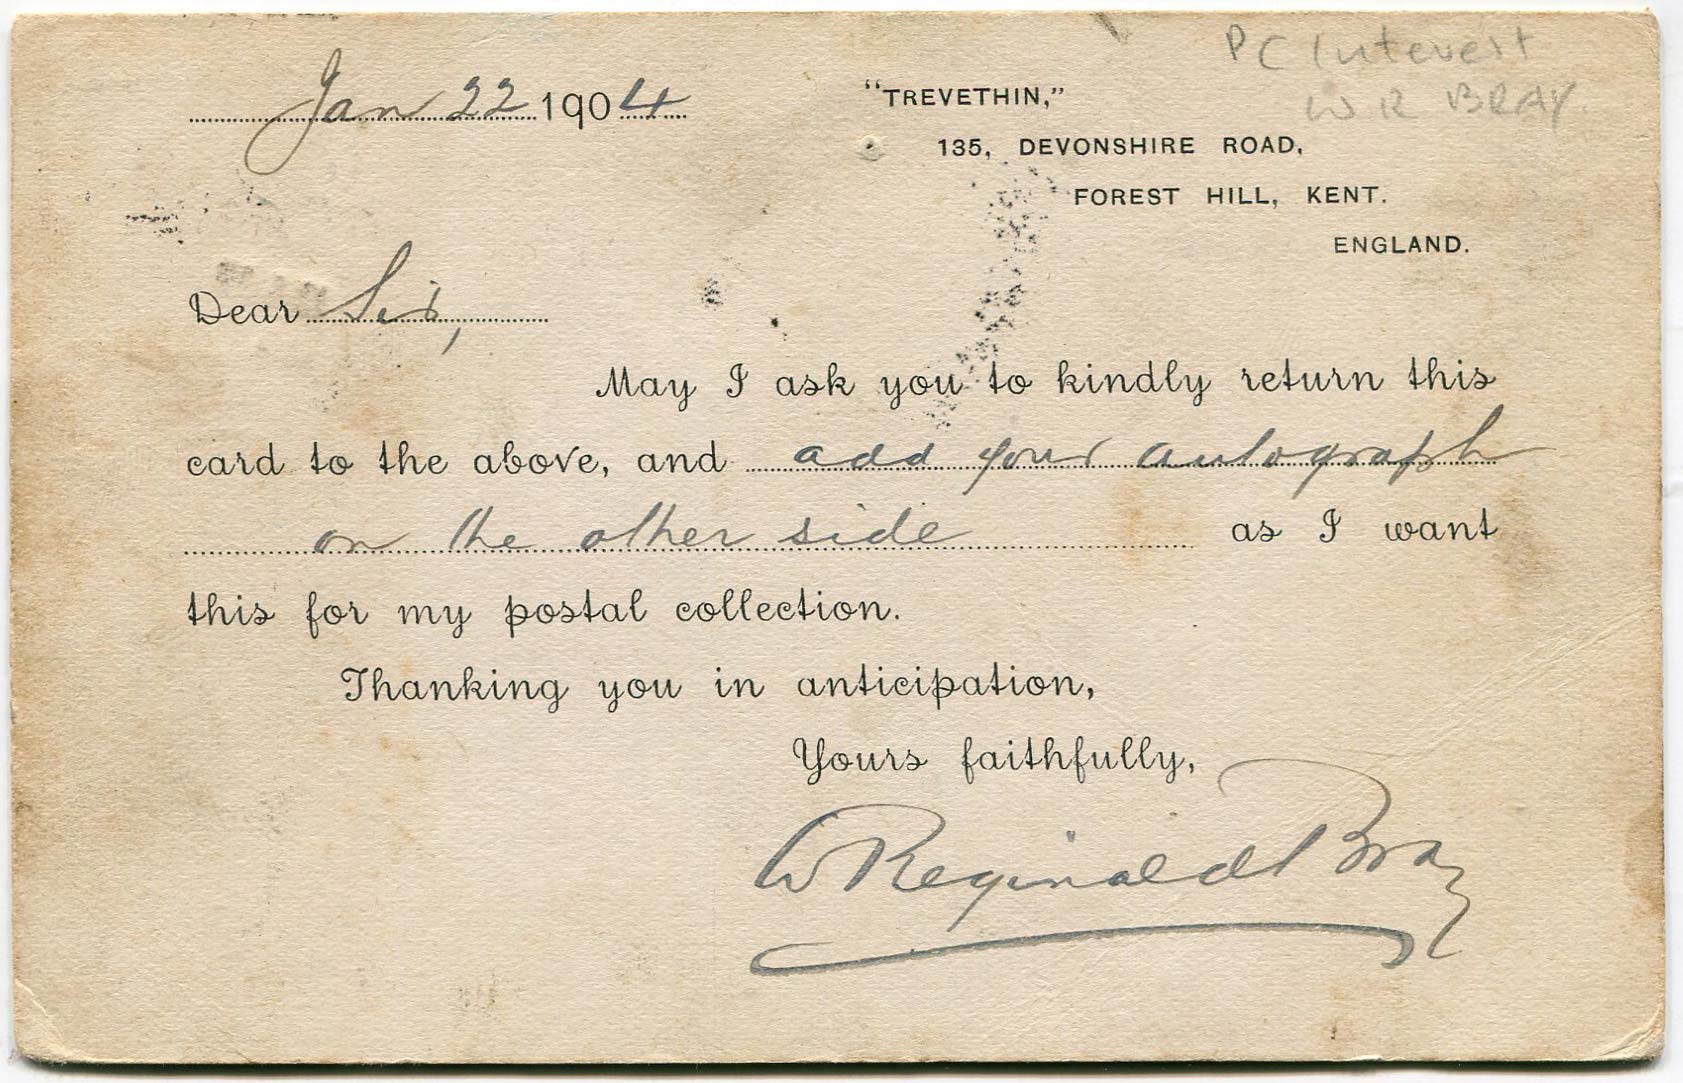 PC Interest
W R BRAY.
Jan 22 1904
"TREVETHIN,"
135, DEVONSHIRE ROAD,
FOREST HILL, KENT.
ENGLAND.
Dear Sir,
May I ask you to kindly return this
card to the above, and add your autograph
on the other side as I want
this for my postal collection.
Thanking you in anticipation,
Yours faithfully,
W Reginald Bray